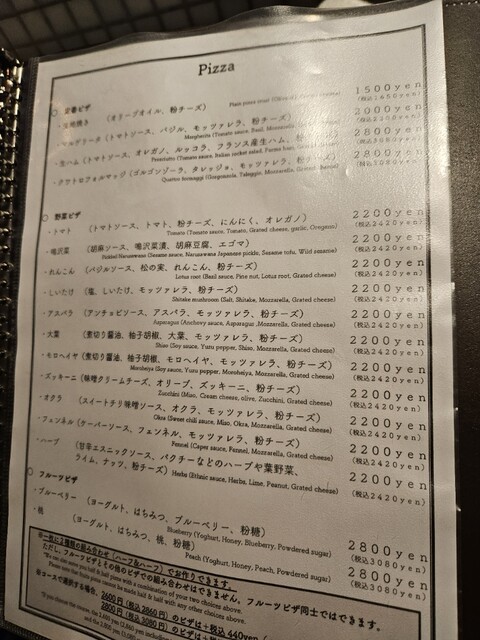 Pizza
○ 定番ピザ
・生地焼き （オリーブオイル、粉チーズ） 1500yen
(税込1650yen)
・マルゲリータ（トマトソース、バジル、モッツァレラ、粉チーズ） 2000yen
Margherita (Tomato sauce, Basil, Mozzarella,
・生ハム（トマトソース、オレガノ、ルッコラ、フランス産生ハム、粉チーズ） 2800yen
Prosciutto (Tomato sauce, Italian rocket salad,
・クワトロフォルマッジ（ゴルゴンゾーラ、タレッジョ、モッツァレラ、粉チーズ） 2800yen
Quattro formaggi (Gorgonzola, Taleggio, Mozzarella, Grated cheese) (税込3080yen)
○ 野菜ピザ
・トマト （トマトソース、トマト、粉チーズ、にんにく、オレガノ） 2200yen
Tomato (Tomato sauce, Tomato, Grated cheese, garlic, Oregano) (税込2420yen)
・鳴沢菜 （胡麻ソース、鳴沢菜漬、胡麻豆腐、エゴマ） 2200yen
Narusawana (Sesame sauce, Narusawana Japanese pickle, Sesame tofu, Wild sesame) (税込2420yen)
・れんこん （バジルソース、松の実、れんこん、粉チーズ） 2200yen
Lotus root (Basil sauce, Pine nut, Lotus root, Grated cheese) (税込2420yen)
・しいたけ （塩、しいたけ、モッツァレラ、粉チーズ） 2200yen
Shitake mushroom (Salt, Shitake, Mozzarella, Grated cheese) (税込2420yen)
・アスパラ （アンチョビソース、アスパラ、モッツァレラ、粉チーズ） 2200yen
Asparagus (Anchovy sauce, Asparagus, Mozzarella, Grated cheese) (税込2420yen)
・大葉 （煮切り醤油、柚子胡椒、大葉、モッツァレラ、粉チーズ） 2200yen
Shiso (Soy sauce, Yuzu pepper, Shiso, Mozzarella, Grated cheese) (税込2420yen)
・モロヘイヤ（煮切り醤油、柚子胡椒、モロヘイヤ、モッツァレラ、粉チーズ） 2200yen
Moroheiya (Soy sauce, Yuzu pepper, Moroheiya, Mozzarella, Grated cheese) (税込2420yen)
・ズッキーニ（味噌クリームチーズ、オリーブ、ズッキーニ、粉チーズ） 2200yen
Zucchini (Miso, Cream cheese, olive, Zucchini, Grated cheese) (税込2420yen)
・オクラ （スイートチリ味噌ソース、オクラ、モッツァレラ、粉チーズ） 2200yen
Okra (Sweet chili sauce, Miso, Okra, Mozzarella, Grated cheese) (税込2420yen)
・フェンネル（ケーパーソース、フェンネル、モッツァレラ、粉チーズ） 2200yen
Fennel (Caper sauce, Fennel, Mozzarella, Grated cheese) (税込2420yen)
・ハーブ （甘辛エスニックソース、パクチーなどのハーブや葉野菜、 2200yen
ライム、ナッツ、粉チーズ） Herbs (Ethnic sauce, Herbs, Lime, Peanut, Grated cheese) (税込2420yen)
○ フルーツピザ
・ブルーベリー （ヨーグルト、はちみつ、ブルーベリー、粉糖） 2800yen
Blueberry (Yoghurt, Honey, Blueberry, Powdered sugar) (税込3080yen)
・桃 （ヨーグルト、はちみつ、桃、粉糖） 2800yen
Peach (Yoghurt, Honey, Peach, Powdered sugar) (税込3080yen)
※一枚に2種類の組み合わせ（ハーフ&ハーフ）でお作りできます。
ただし、フルーツピザとその他のピザでの組み合わせはできません。フルーツピザ同士ではできます。
※コースで選択する場合、2600円（税込2860円）のピザは＋税込440yen
2800円（税込3080円）のピザは＋税込